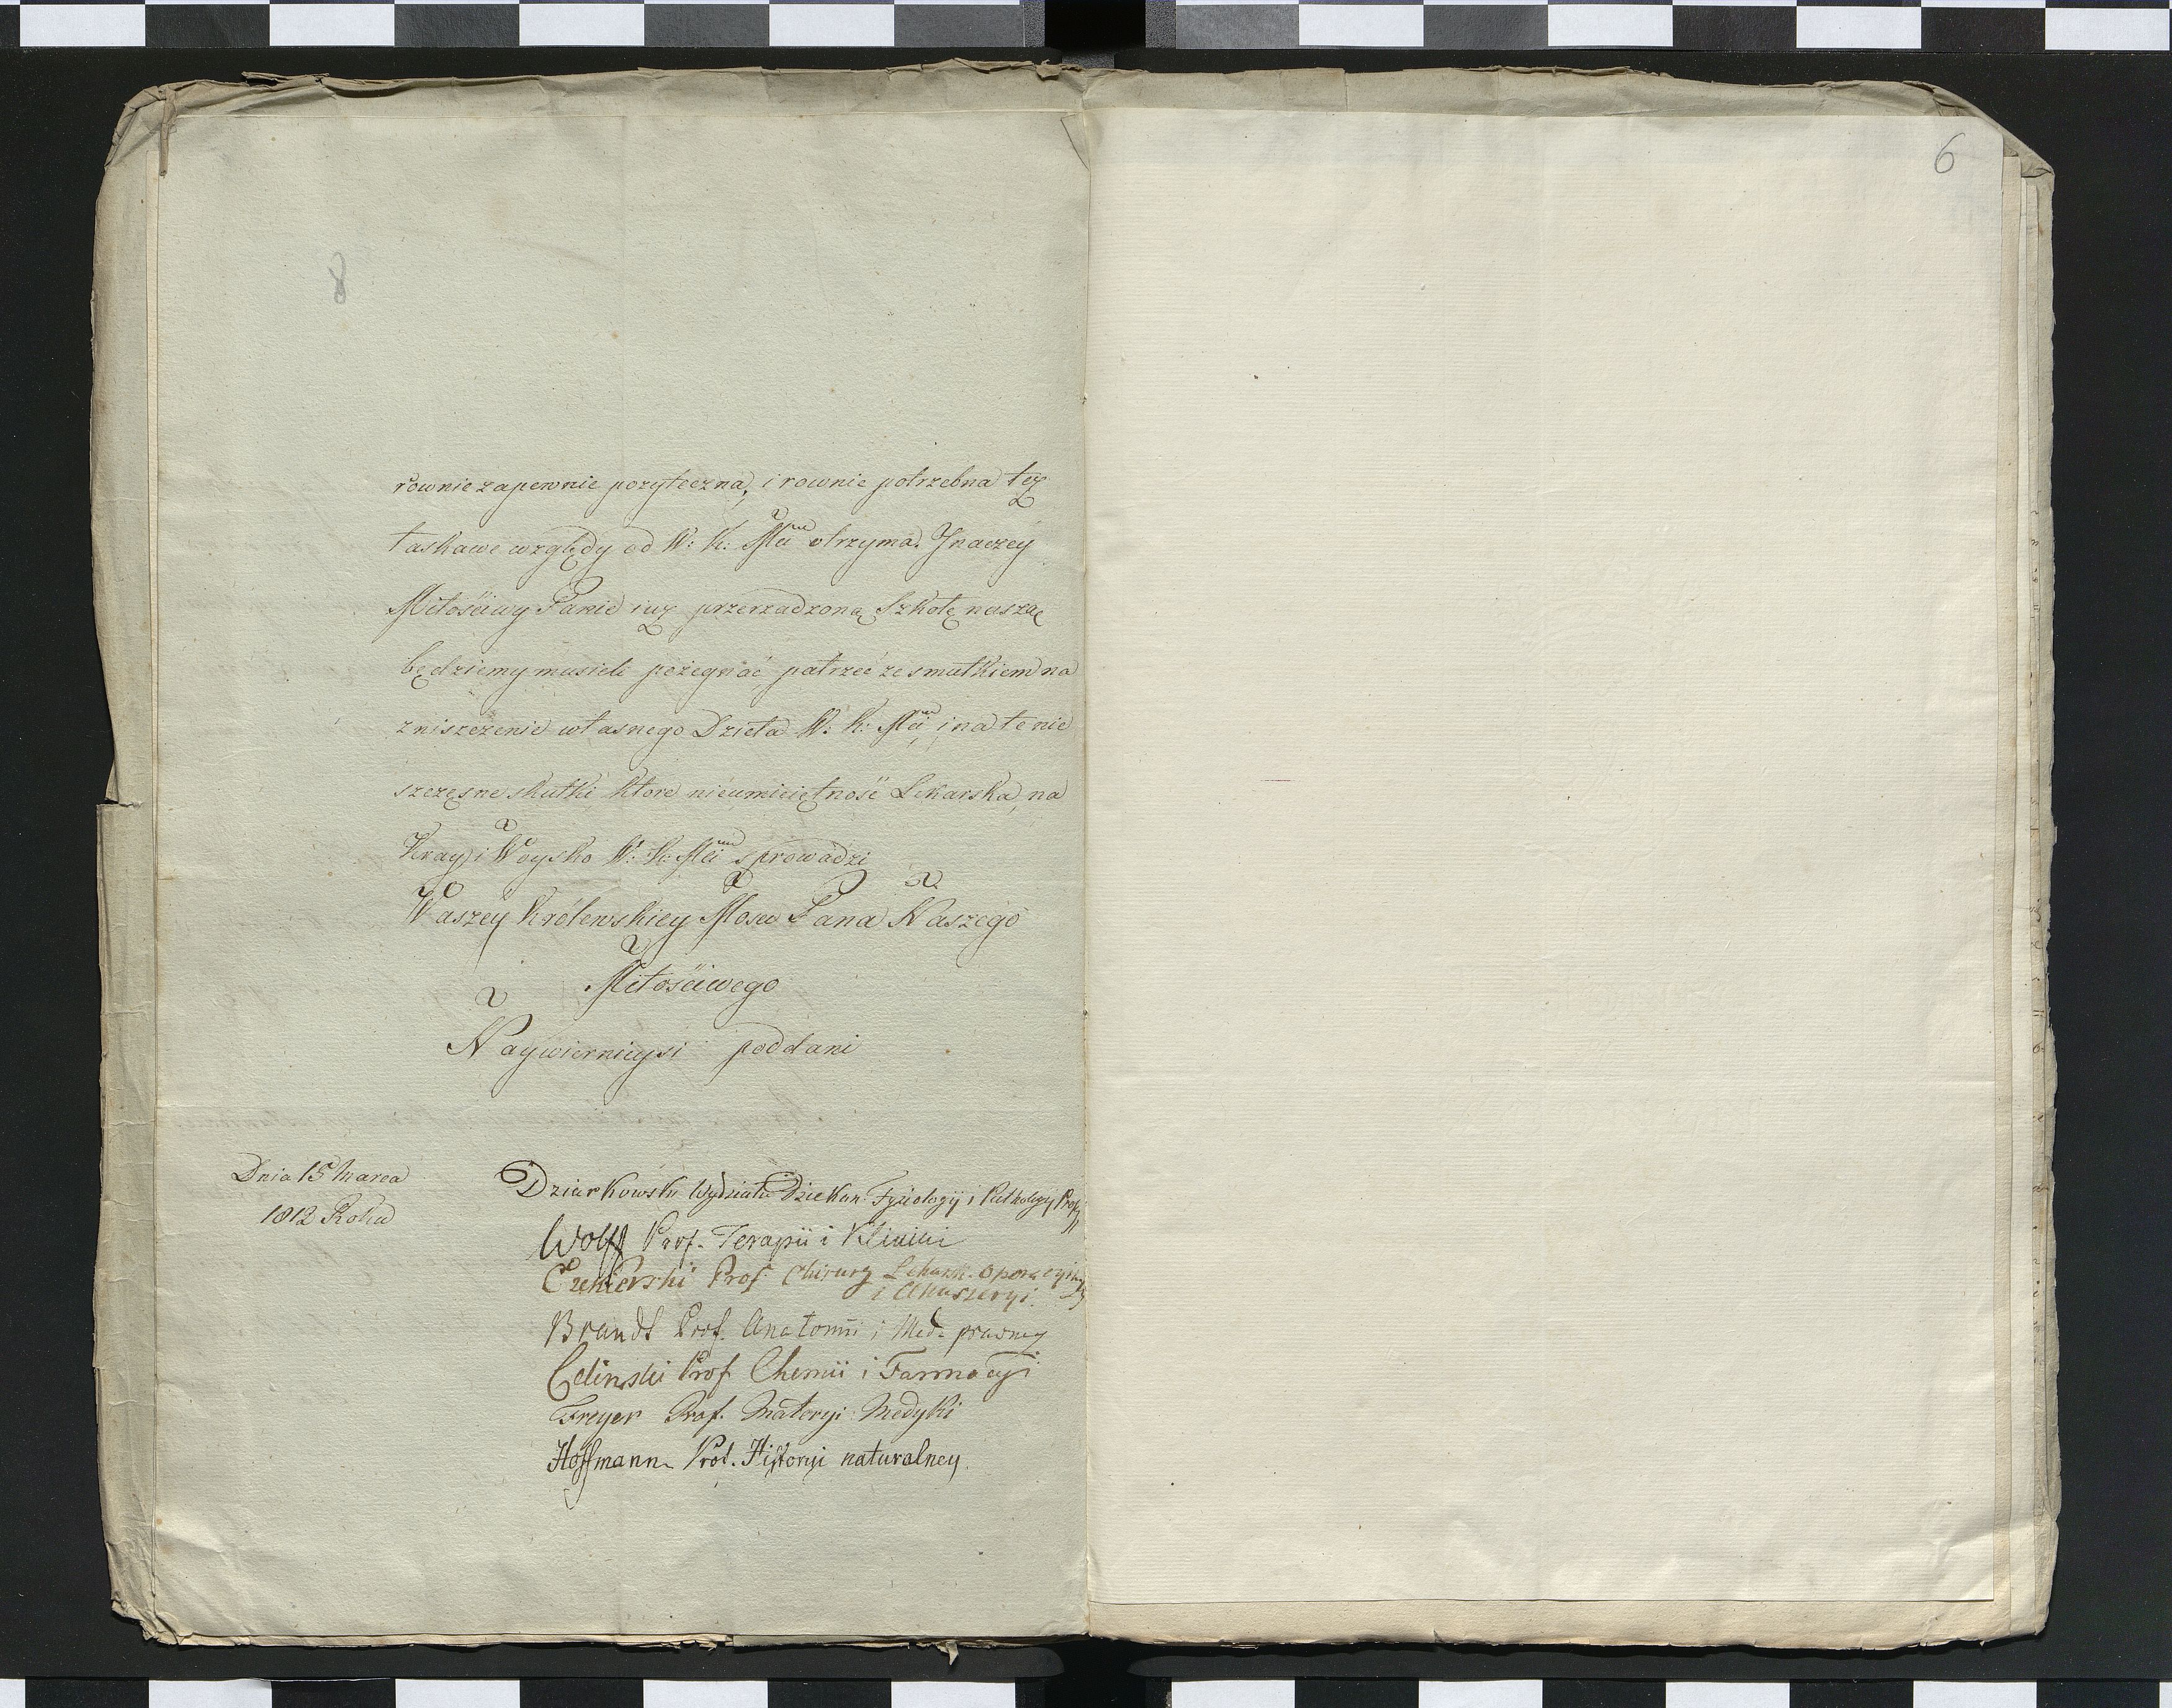 8
rownie zapewnie pozyteczna, i rownie potrzebna też
łaskawe względy od W: K: Mci otrzyma. Ynaczey
Miłościwy Panie iuż przerzadzoną Szkołę naszą
będziemy musieli pożegnać, patrzeć ze smutkiem na
zniszczenie własnego Dzieła W: K: Mci, i na te nie
szczęsne skutki, ktore nieumieiętność Lekarska, na
Kray i Woysko W: K: Mci sprowadzi
Waszey Królewskiey Mosci Pana Naszego
Miłościwego
Naywiernieysi poddani
Dnia 15 Marca
1812 Roku
Dziarkowski Wydziału Dziekan Fyziologij i Pathologij Prof.
Wolff Prof. Terapii i Kliniki
Czekierski Prof. Chirurg Lekarsk. Operacyiney
i Akuszeryi.
Brandt Prof. Anatomii i Med. prawney
Celinski Prof Chemii i Farmacyi
Freyer Prof. Materyi Medyki
Hoffmann Prof. Historyi naturalney.
6